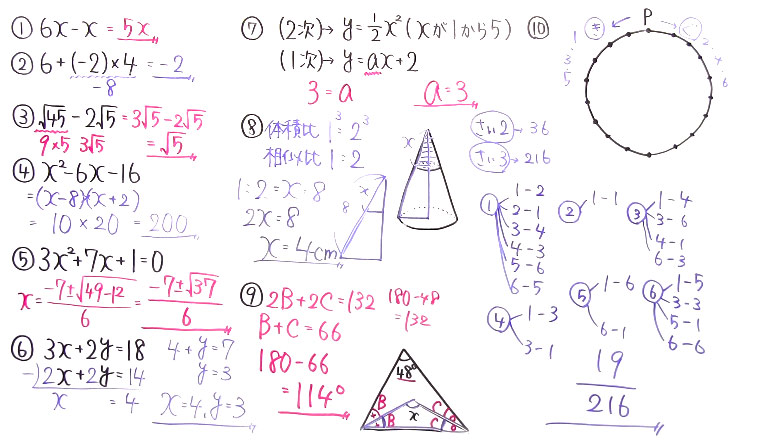 ① 6x-x=5x
② 6+(-2)×4=-2
-8
③ √45-2√5=3√5-2√5
9×5 3√5 =√5
④ x²-6x-16
=(x-8)(x+2)
=10×20=200
⑤ 3x²+7x+1=0
x=(-7±√49-12)/6=(-7±√37)/6
⑥ 3x+2y=18
-)2x+2y=14
x=4
4+y=7
y=3
x=4, y=3
⑦ (2次)→y=1/2x²(xが1から5)
(1次)→y=ax+2
3=a
a=3
⑧ 体積比 1³:2³
相似比 1:2
1:2=x:8
2x=8
x=4cm
x
8
x
⑨ 2B+2C=132
180-48
=132
B+C=66
180-66
=114°
48°
B
B
C
C
x
⑩ P
1
3
5
2
4
6
さい2→36
さい3→216
① 1-2
2-1
3-4
4-3
5-6
6-5
② 1-1
③ 1-4
3-6
4-1
6-3
④ 1-3
3-1
⑤ 1-6
6-1
⑥ 1-5
3-3
5-1
6-6
19
216